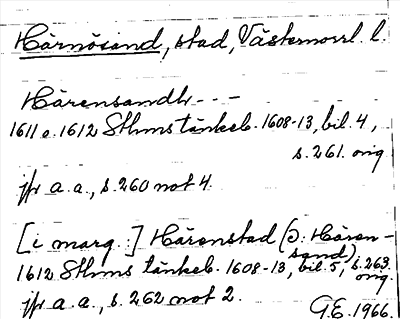 Härnösand, stad, Västernorrl. l.
Härensandh - - -
1611 o. 1612 Sthms tänkeb. 1608-13, bil. 4,
s. 261. orig
jfr a.a., s. 260 not 4.
[i marg.:] Härenstad (ɔ: Hären-
sand)
1612 Sthms tänkeb. 1608-13, bil. 5, s. 263.
orig.
jfr a.a., s. 262 not 2.
G.E. 1966.